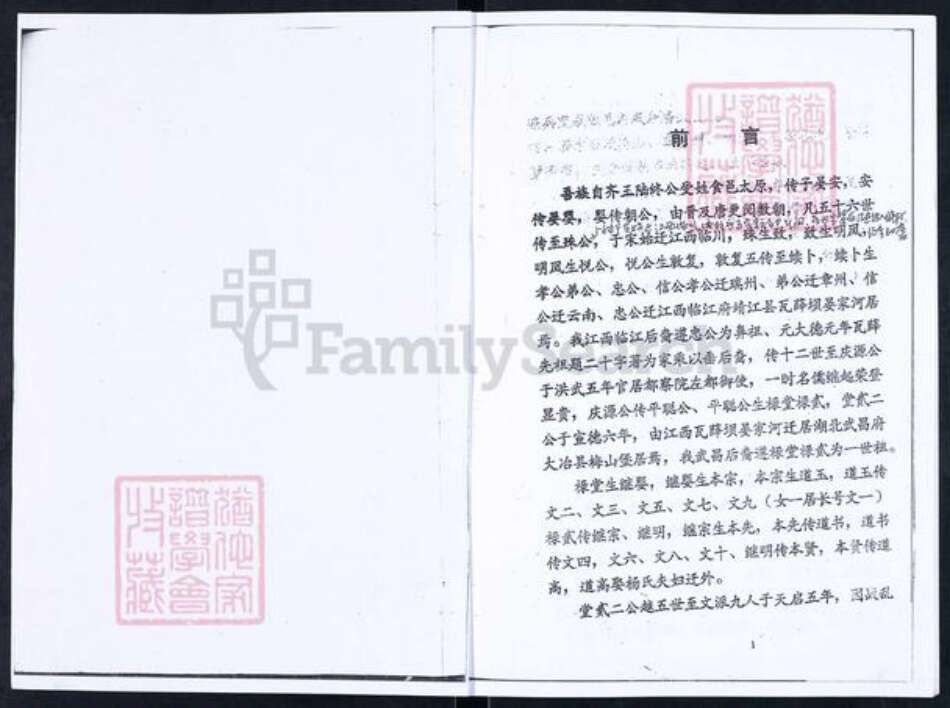 前 言
吾族自齐王陆终公受姓食邑太原,传子晏安,安
传晏婴,婴传朝公,由晋及唐更阅数朝,凡五十六世
传至珠公,于宋始迁江西临川,珠生敦,敦生明凤,
明凤生悦公,悦公生敦复,敦复五传至续卜,续卜生
孝公弟公、忠公、信公孝公迁瑞州、弟公迁章州、信
公迁云南、忠公迁江西临江府靖江县瓦薛坝晏家河居
焉。我江西临江后裔遵忠公为鼻祖、元大德元年瓦薛
先祖题二十字著为家乘以垂后裔,传十二世至庆源公
于洪武五年官居都察院左都御使,一时名儒继起荣登
显贵,庆源公传平聪公、平聪公生禄堂禄贰,堂贰二
公于宣德六年,由江西瓦薛坝晏家河迁居湖北武昌府
大冶县梅山堡居焉,我武昌后裔遵禄堂禄贰为一世祖。
禄堂生继婴,继婴生本宗,本宗生道玉,道玉传
文二、文三、文五、文七、文九(女一居长号文一)
禄贰传继宗、继明,继宗生本先,本先传道书,道书
传文四,文六、文八、文十、继明传本贤,本贤传道
高,道高娶杨氏夫妇迁外。
堂贰二公越五世至文派九人于天启五年,因战乱
1
FamilySearch